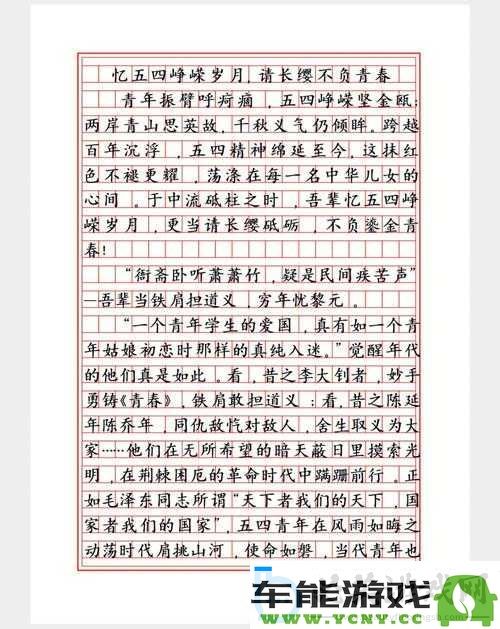 忆五四峥嵘岁月,请长缨不负青春
青年振臂呼疴痛，五四峥嵘坚金瓯;
两岸青山思英故，千秋义气仍倾眸。跨越
百年沉浮，五四精神绵延至今，这抹红
色不褪更耀，荡涤在每一名中华儿女的
心间。于中流砥柱之时，吾辈忆五四峥
嵘岁月，更当请长缨砥砺，不负鎏金青
春!
“衙斋卧听萧萧竹，疑是民间疾苦声”
—吾辈当铁肩担道义，穷年忧黎元。
“一个青年学生的爱国，真有如一个青
年姑娘初恋时那样的真纯入迷。”觉醒年代
的他们真是如此。看，昔之李大钊者，妙手
勇铸《青春》，铁肩敢担道义；看，昔之陈延
年陈乔年，同仇敌忾对敌人，舍生取义为大
家……他们在无所希望的暗天蔽日里摸索光
明，在荆棘困厄的革命时代中蹒跚前行。正
如毛泽东同志所谓“天下者我们的天下，国
家者我们的国家”，五四青年在风雨如晦之
动荡时代肩挑山河，使命如磐，当代青年也
车能游戏
www.YCNY.CC